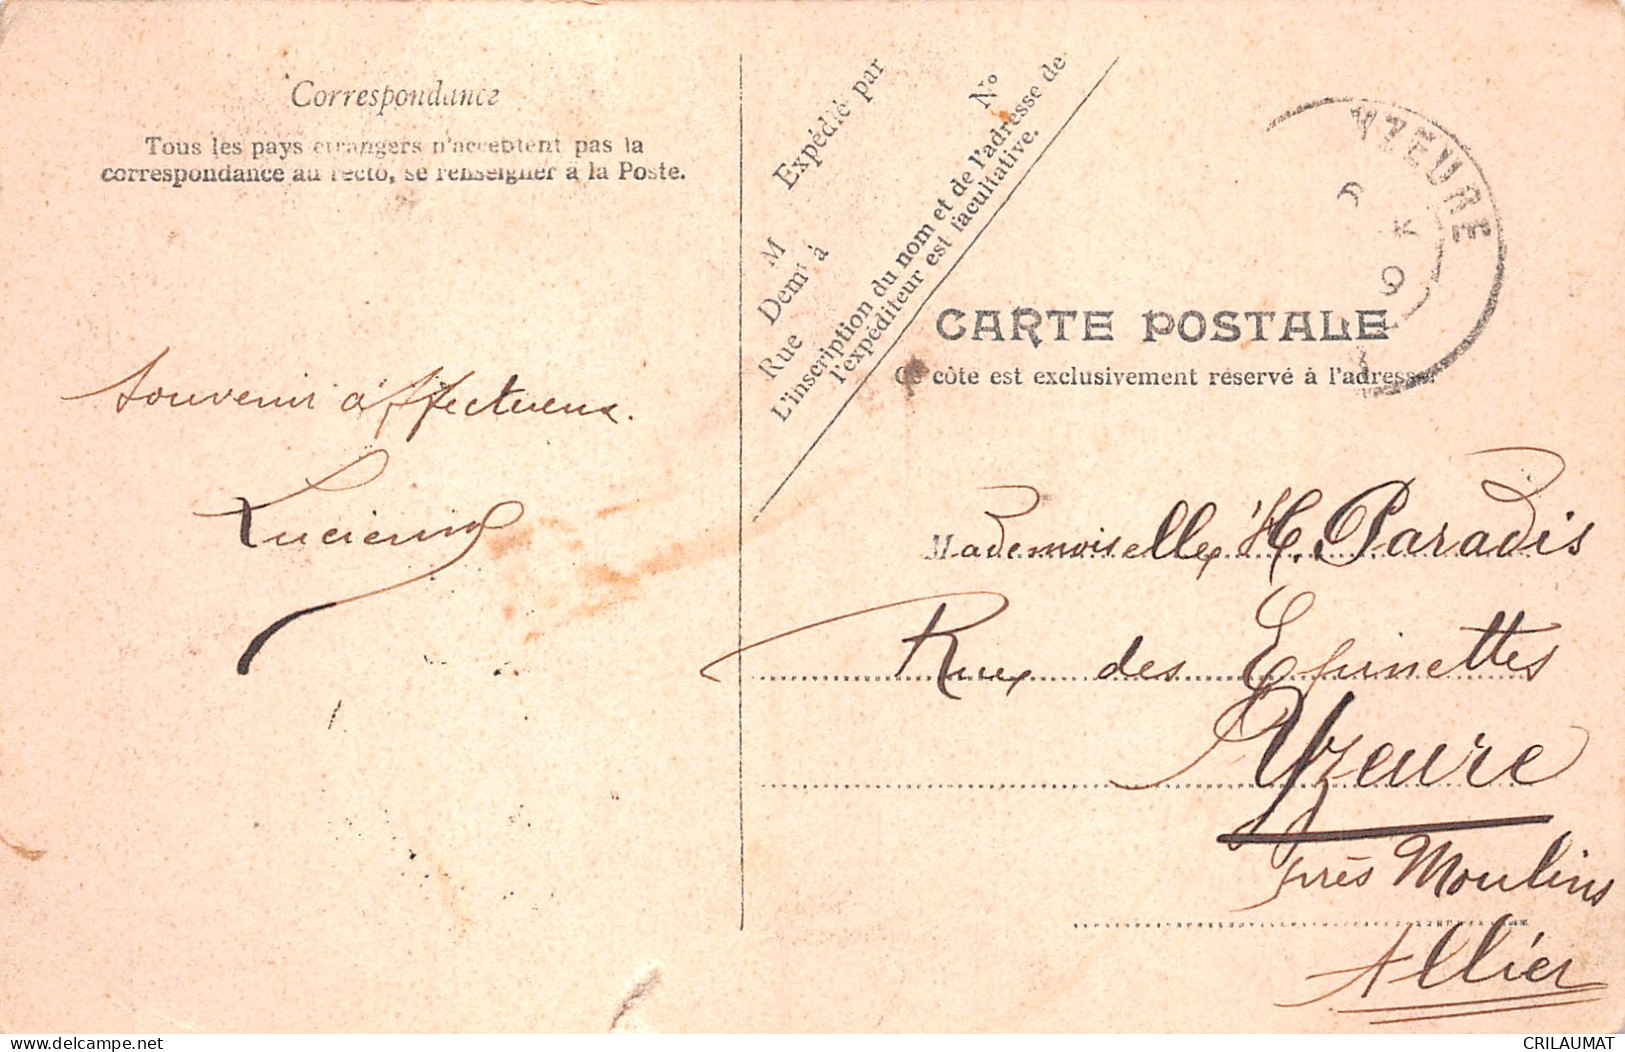 Correspondance
Tous les pays étrangers n'acceptent pas la
correspondance au recto, se renseigner à la Poste.
Souvenir affectueux.
Lucienne
Expédié par
M
Demt à
Rue
No
L'inscription du nom et de l'adresse de
l'expéditeur est facultative.
YZEURE
CARTE POSTALE
Ce côté est exclusivement réservé à l'adresse.
Mademoiselle H. Paradis
Rue des Epinettes
Yzeure
près Moulins
Allier
delcampe.net
CRILAUMAT